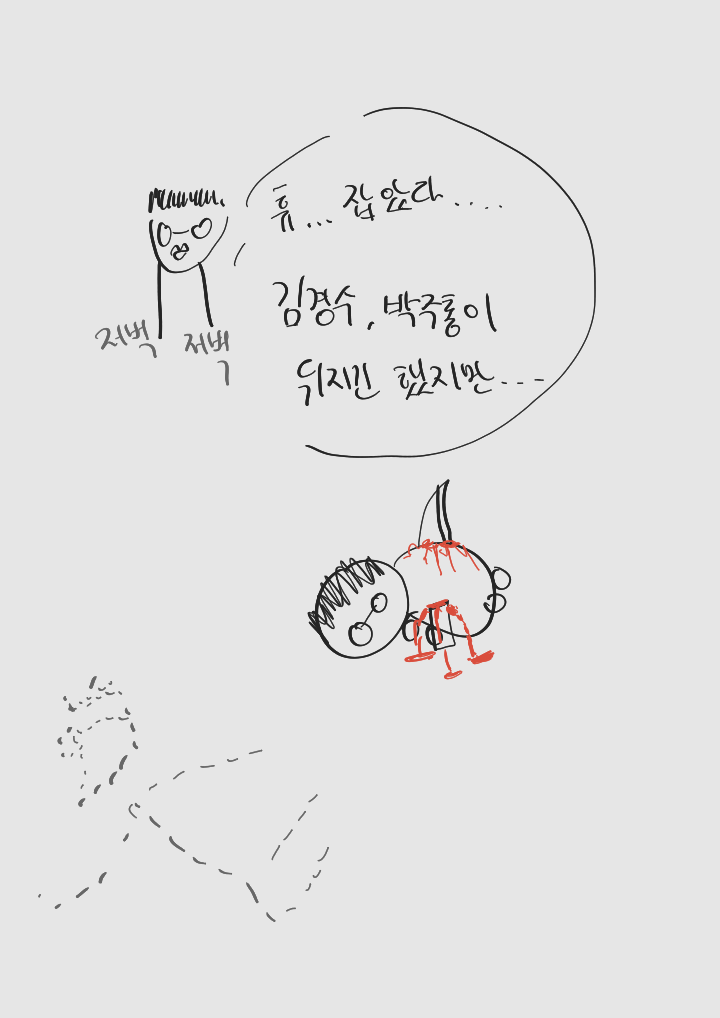 휴... 잡았다....
김경수, 박주홍이
뒤지긴 했지만...
저벅 저벅